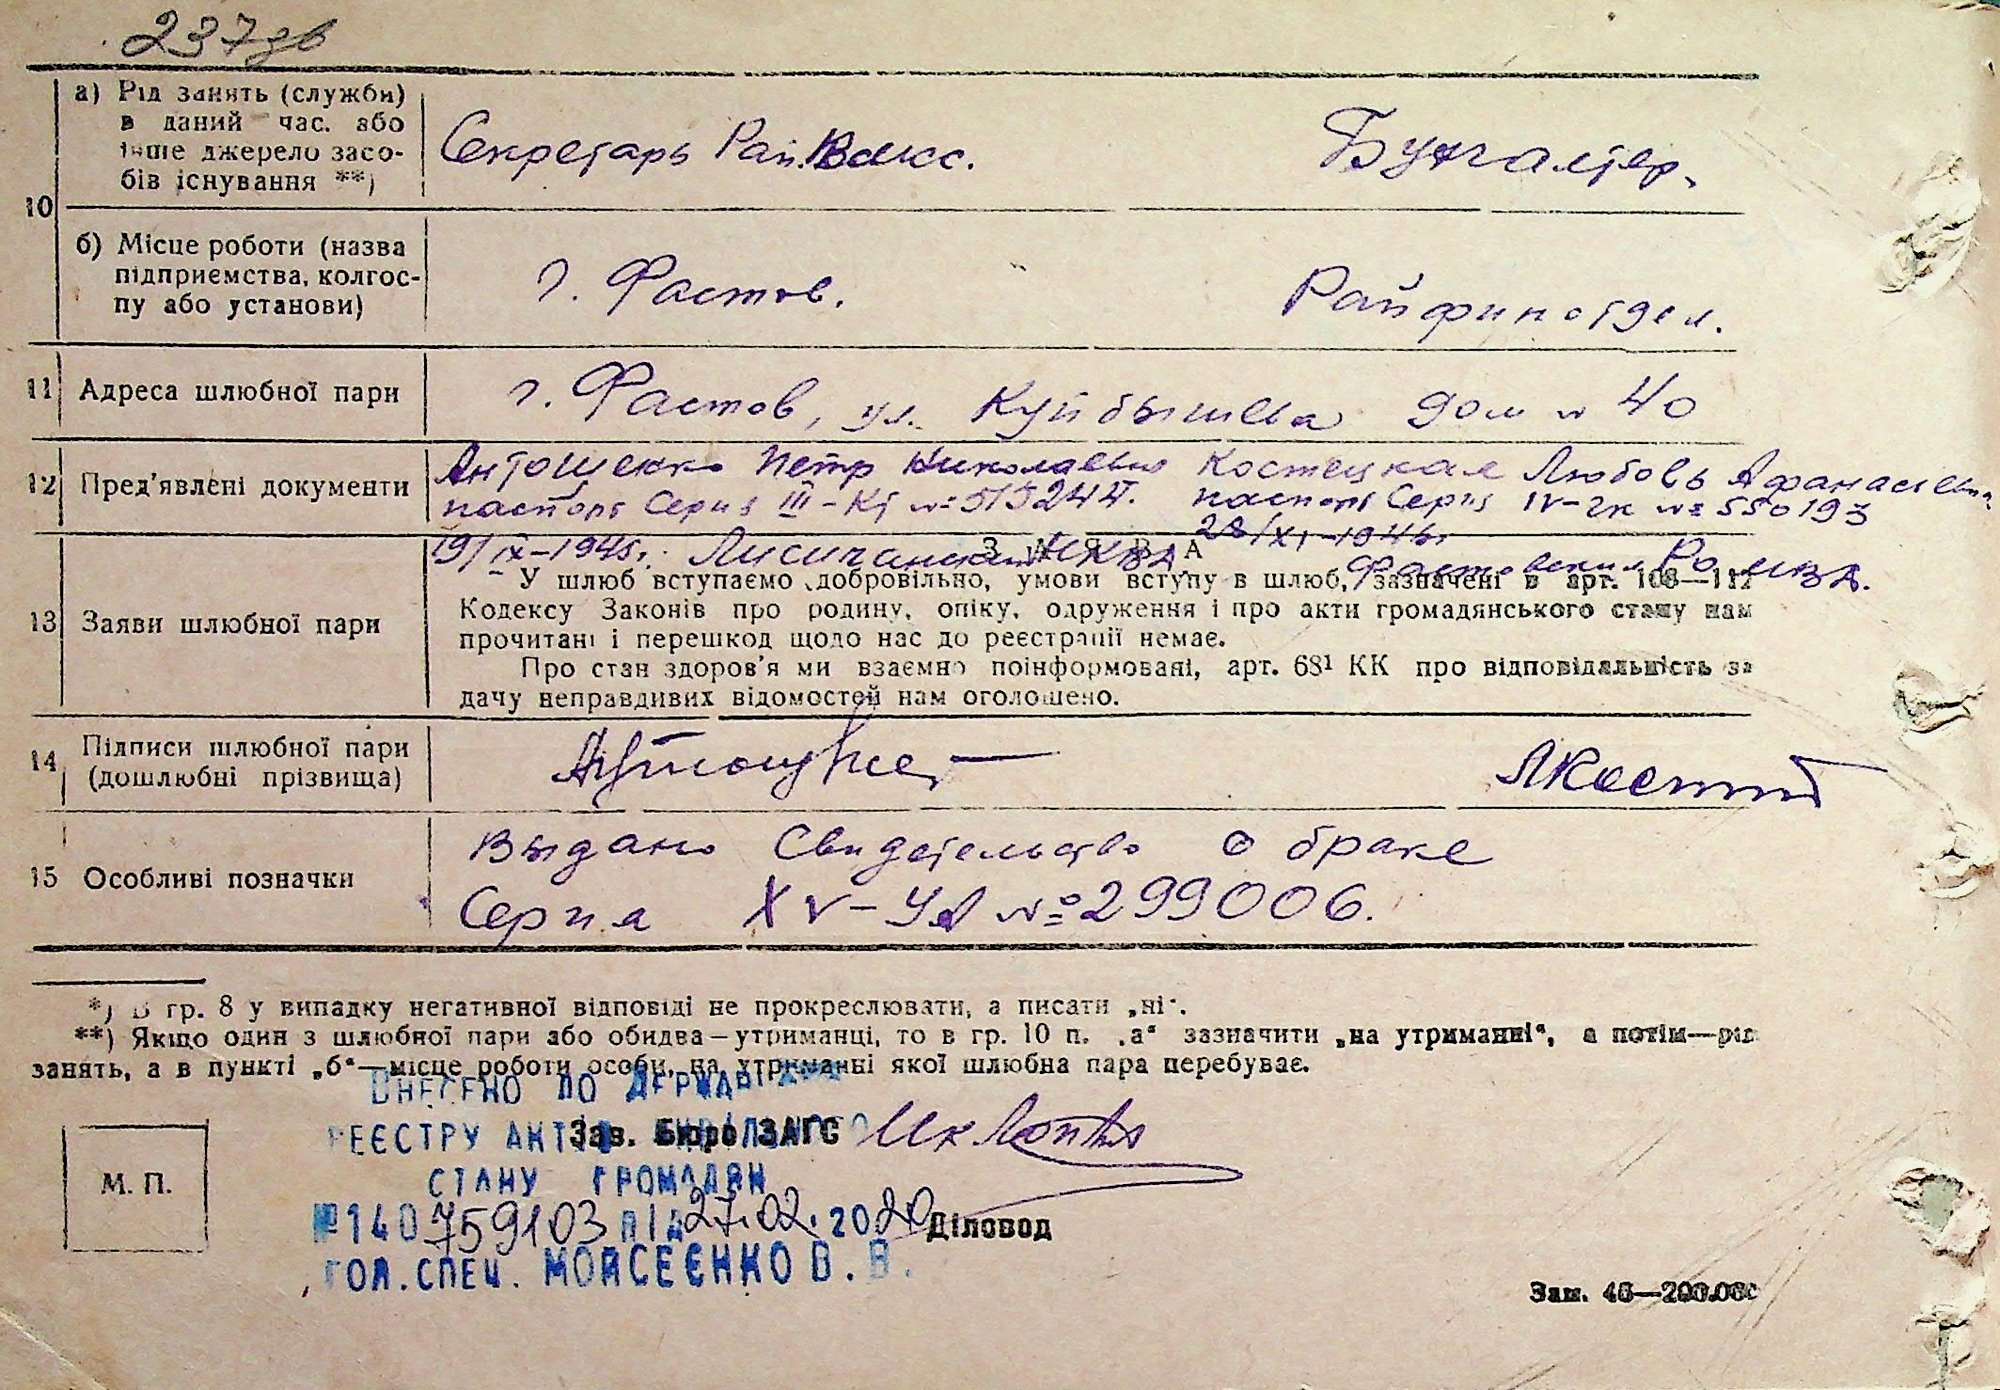 237зв
10
а) Рід занять (служби)
в даний час. або
інше джерело засо-
бів існування **)
Секретарь Рай.
Бухгалтер.
б) Місце роботи (назва
підприємства, колгос-
пу або установи)
г. Фастов.
Райфинотдел.
11 Адреса шлюбної пари
г. Фастов, ул. Куйбышева дом № 40
12 Пред’явлені документи
Антошенко Петр Николаевич Костецкая Любовь Афанасьевна
паспорт Серия III-КЦ № 515244. паспорт Серия IV-ЧК № 550193
19/IX-1945г. Лисичанский НКВД 28/XI-1946г.
Фастовский РО МВД.
13 Заяви шлюбної пари
ЗАЯВА
У шлюб вступаємо добровільно, умови вступу в шлюб, зазначені в арт. 108—112
Кодексу Законів про родину, опіку, одруження і про акти громадянського стану нам
прочитані і перешкод щодо нас до реєстрації немає.
Про стан здоров’я ми взаємно поінформовані, арт. 68¹ КК про відповідальність за
дачу неправдивих відомостей нам оголошено.
14 Підписи шлюбної пари
(дошлюбні прізвища)
ЛКостец
15 Особливі позначки
Выдано Свидетельство о браке
Серия XV-УА № 299006.
*) В гр. 8 у випадку негативної відповіді не прокреслювати, а писати „ні“.
**) Якщо один з шлюбної пари або обидва—утриманці, то в гр. 10 п. „а“ зазначити „на утриманні“, а потім—рід
занять, а в пункті „б“—місце роботи особи, на утриманні якої шлюбна пара перебуває.
ВНЕСЕНО ДО ДЕРЖАВНОГО
РЕЄСТРУ АКТІВ ЦИВІЛЬНОГО
Зав. Бюро ЗАГС
СТАНУ ГРОМАДЯН
М. П.
№ 140759103 ВІД 27.02.2020
Діловод
ГОЛ.СПЕЦ. МОЙСЕЄНКО В. В.
Зам. 45—200.000